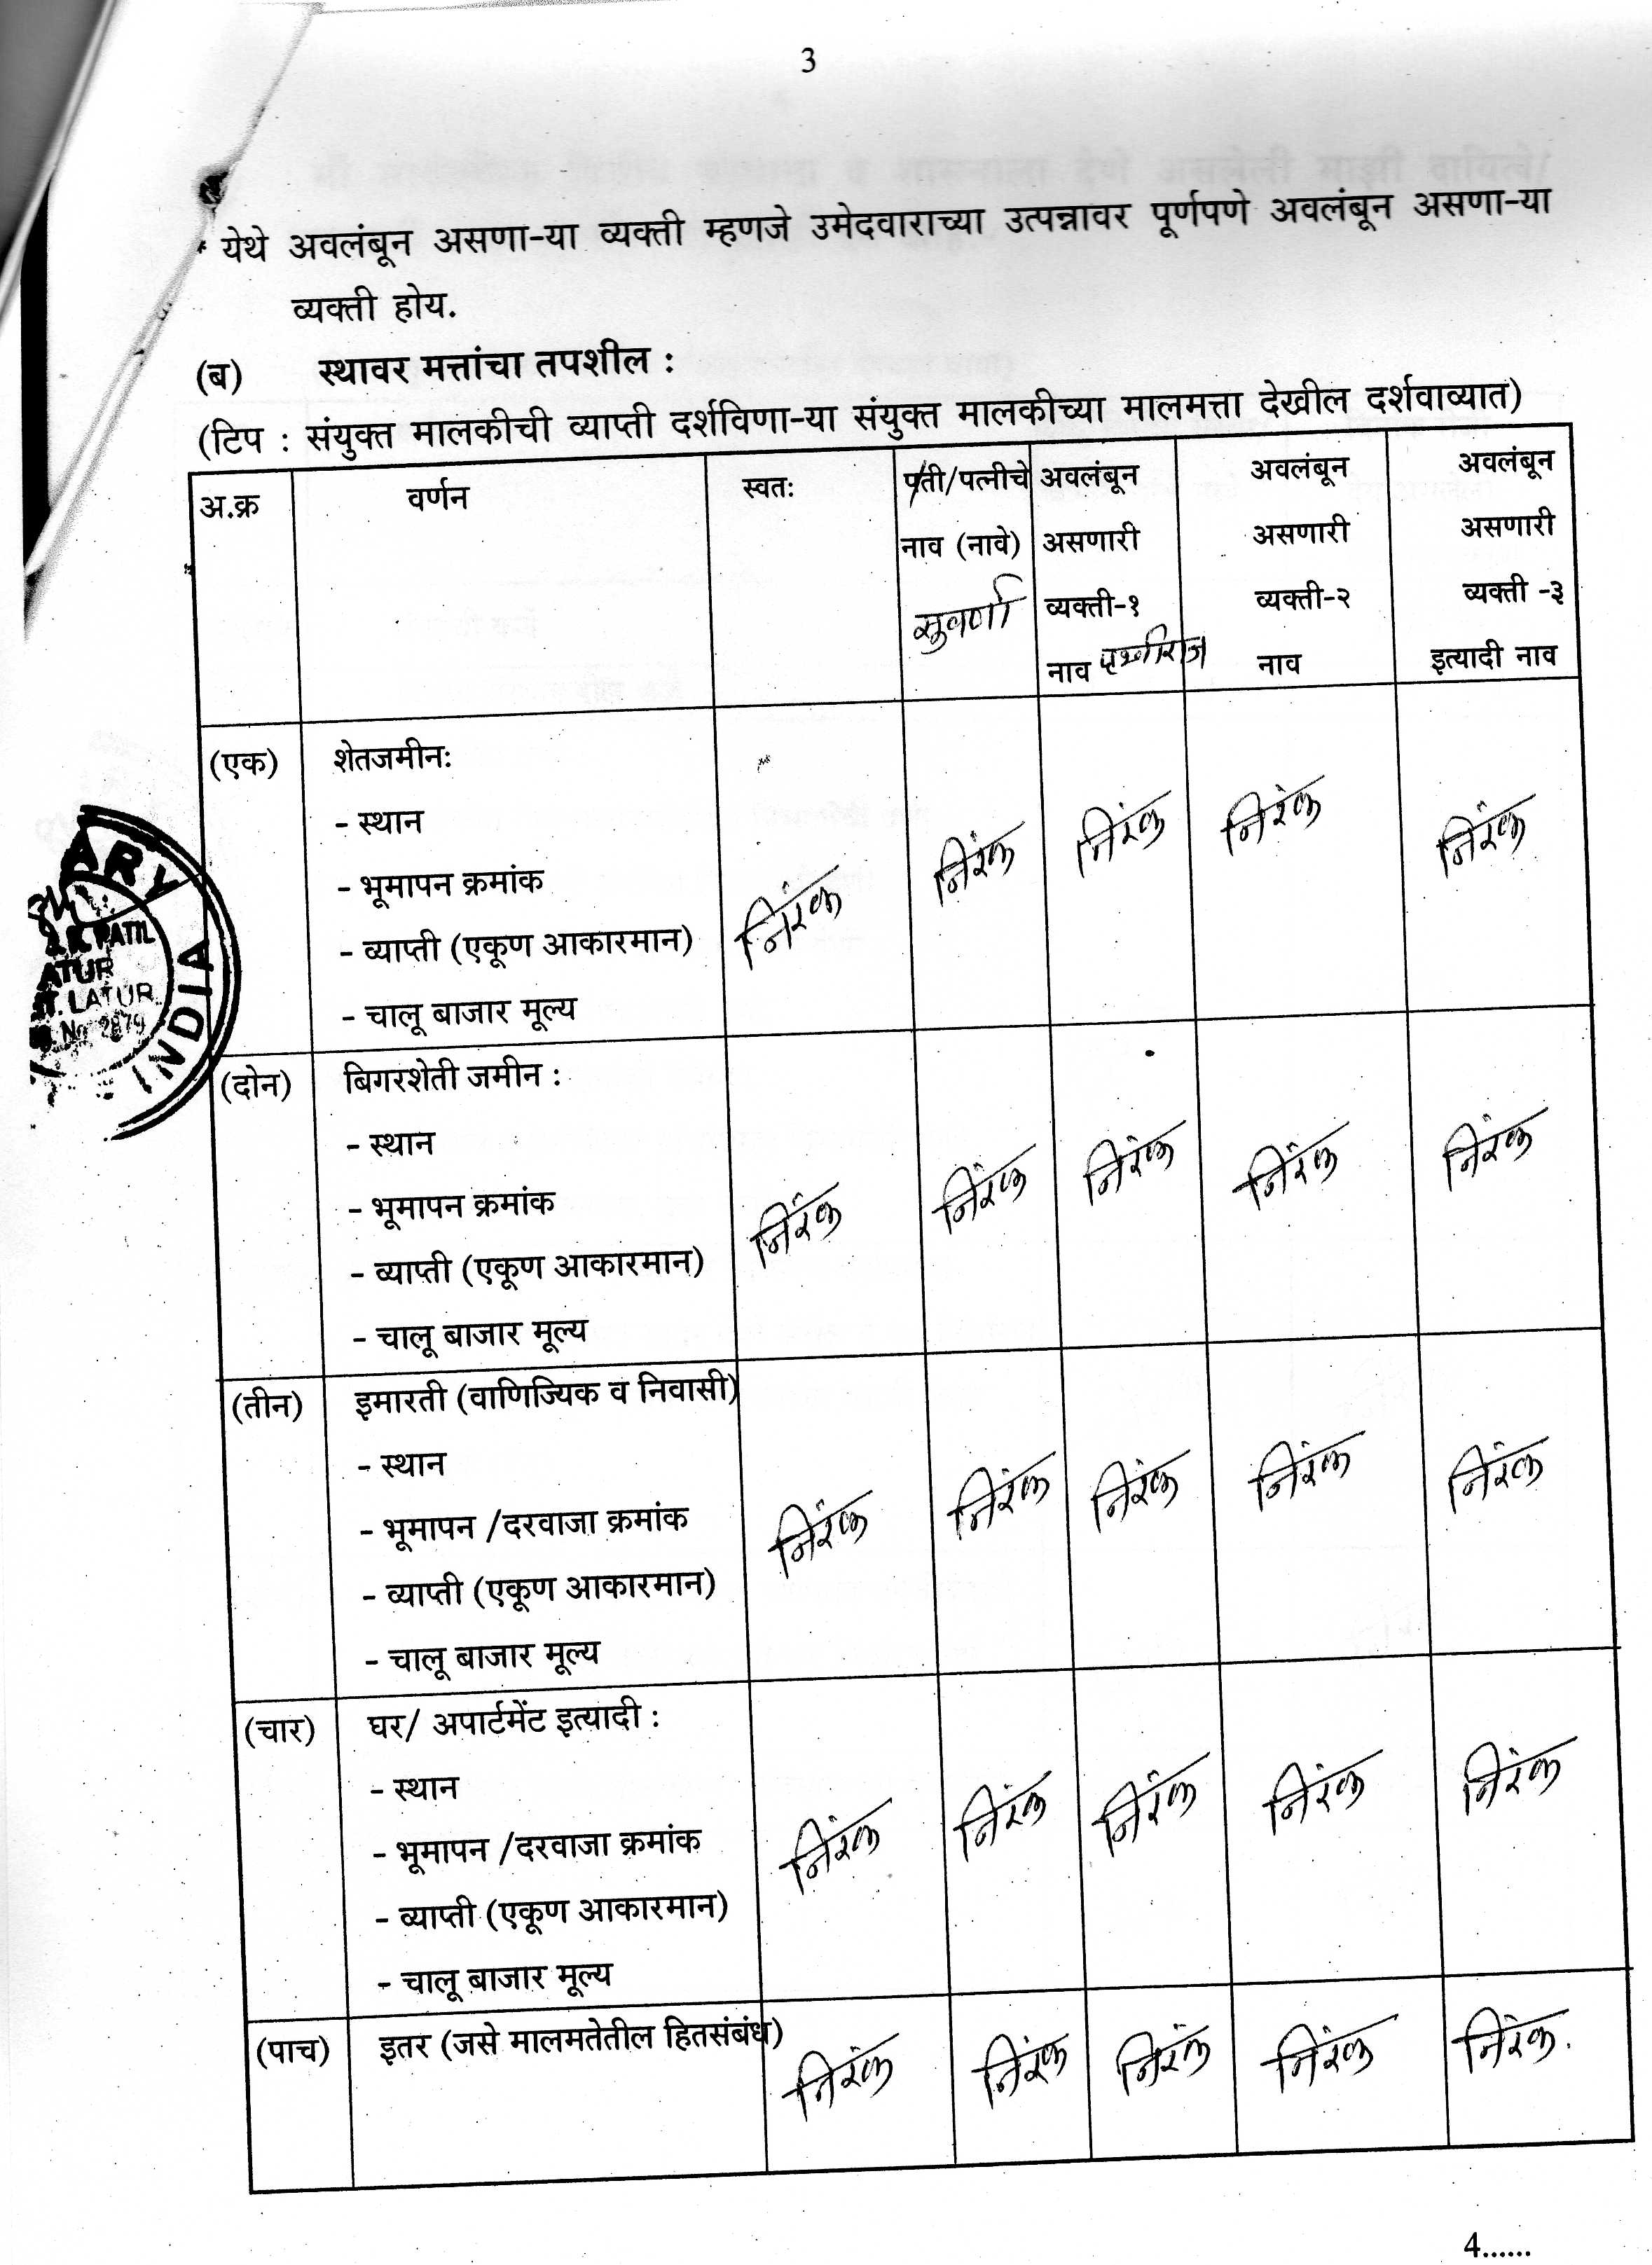 3
येथे अवलंबून असणा-या व्यक्ती म्हणजे उमेदवाराच्या उत्पन्नावर पूर्णपणे अवलंबून असणा-या
व्यक्ती होय.
(ब) स्थावर मत्तांचा तपशील :
(टिप : संयुक्त मालकीची व्याप्ती दर्शविणा-या संयुक्त मालकीच्या मालमत्ता देखील दर्शवाव्यात)
अ.क्र वर्णन स्वतः पती/पत्नीचे अवलंबून अवलंबून अवलंबून
नाव (नावे) असणारी असणारी असणारी
सुवर्णा व्यक्ती-१ व्यक्ती-२ व्यक्ती -३
नाव पृथ्वीराज नाव इत्यादी नाव
(एक) शेतजमीनः
- स्थान
- भूमापन क्रमांक
- व्याप्ती (एकूण आकारमान)
- चालू बाजार मूल्य
निरंक निरंक निरंक निरंक निरंक
(दोन) बिगरशेती जमीन :
- स्थान
- भूमापन क्रमांक
- व्याप्ती (एकूण आकारमान)
- चालू बाजार मूल्य
निरंक निरंक निरंक निरंक निरंक
(तीन) इमारती (वाणिज्यिक व निवासी)
- स्थान
- भूमापन /दरवाजा क्रमांक
- व्याप्ती (एकूण आकारमान)
- चालू बाजार मूल्य
निरंक निरंक निरंक निरंक निरंक
(चार) घर/ अपार्टमेंट इत्यादी :
- स्थान
- भूमापन /दरवाजा क्रमांक
- व्याप्ती (एकूण आकारमान)
- चालू बाजार मूल्य
निरंक निरंक निरंक निरंक निरंक
(पाच) इतर (जसे मालमतेतील हितसंबंध)
निरंक निरंक निरंक निरंक निरंक.
ARY
PATIL
ATUR
T. LATUR
No 2879
INDIA
4......